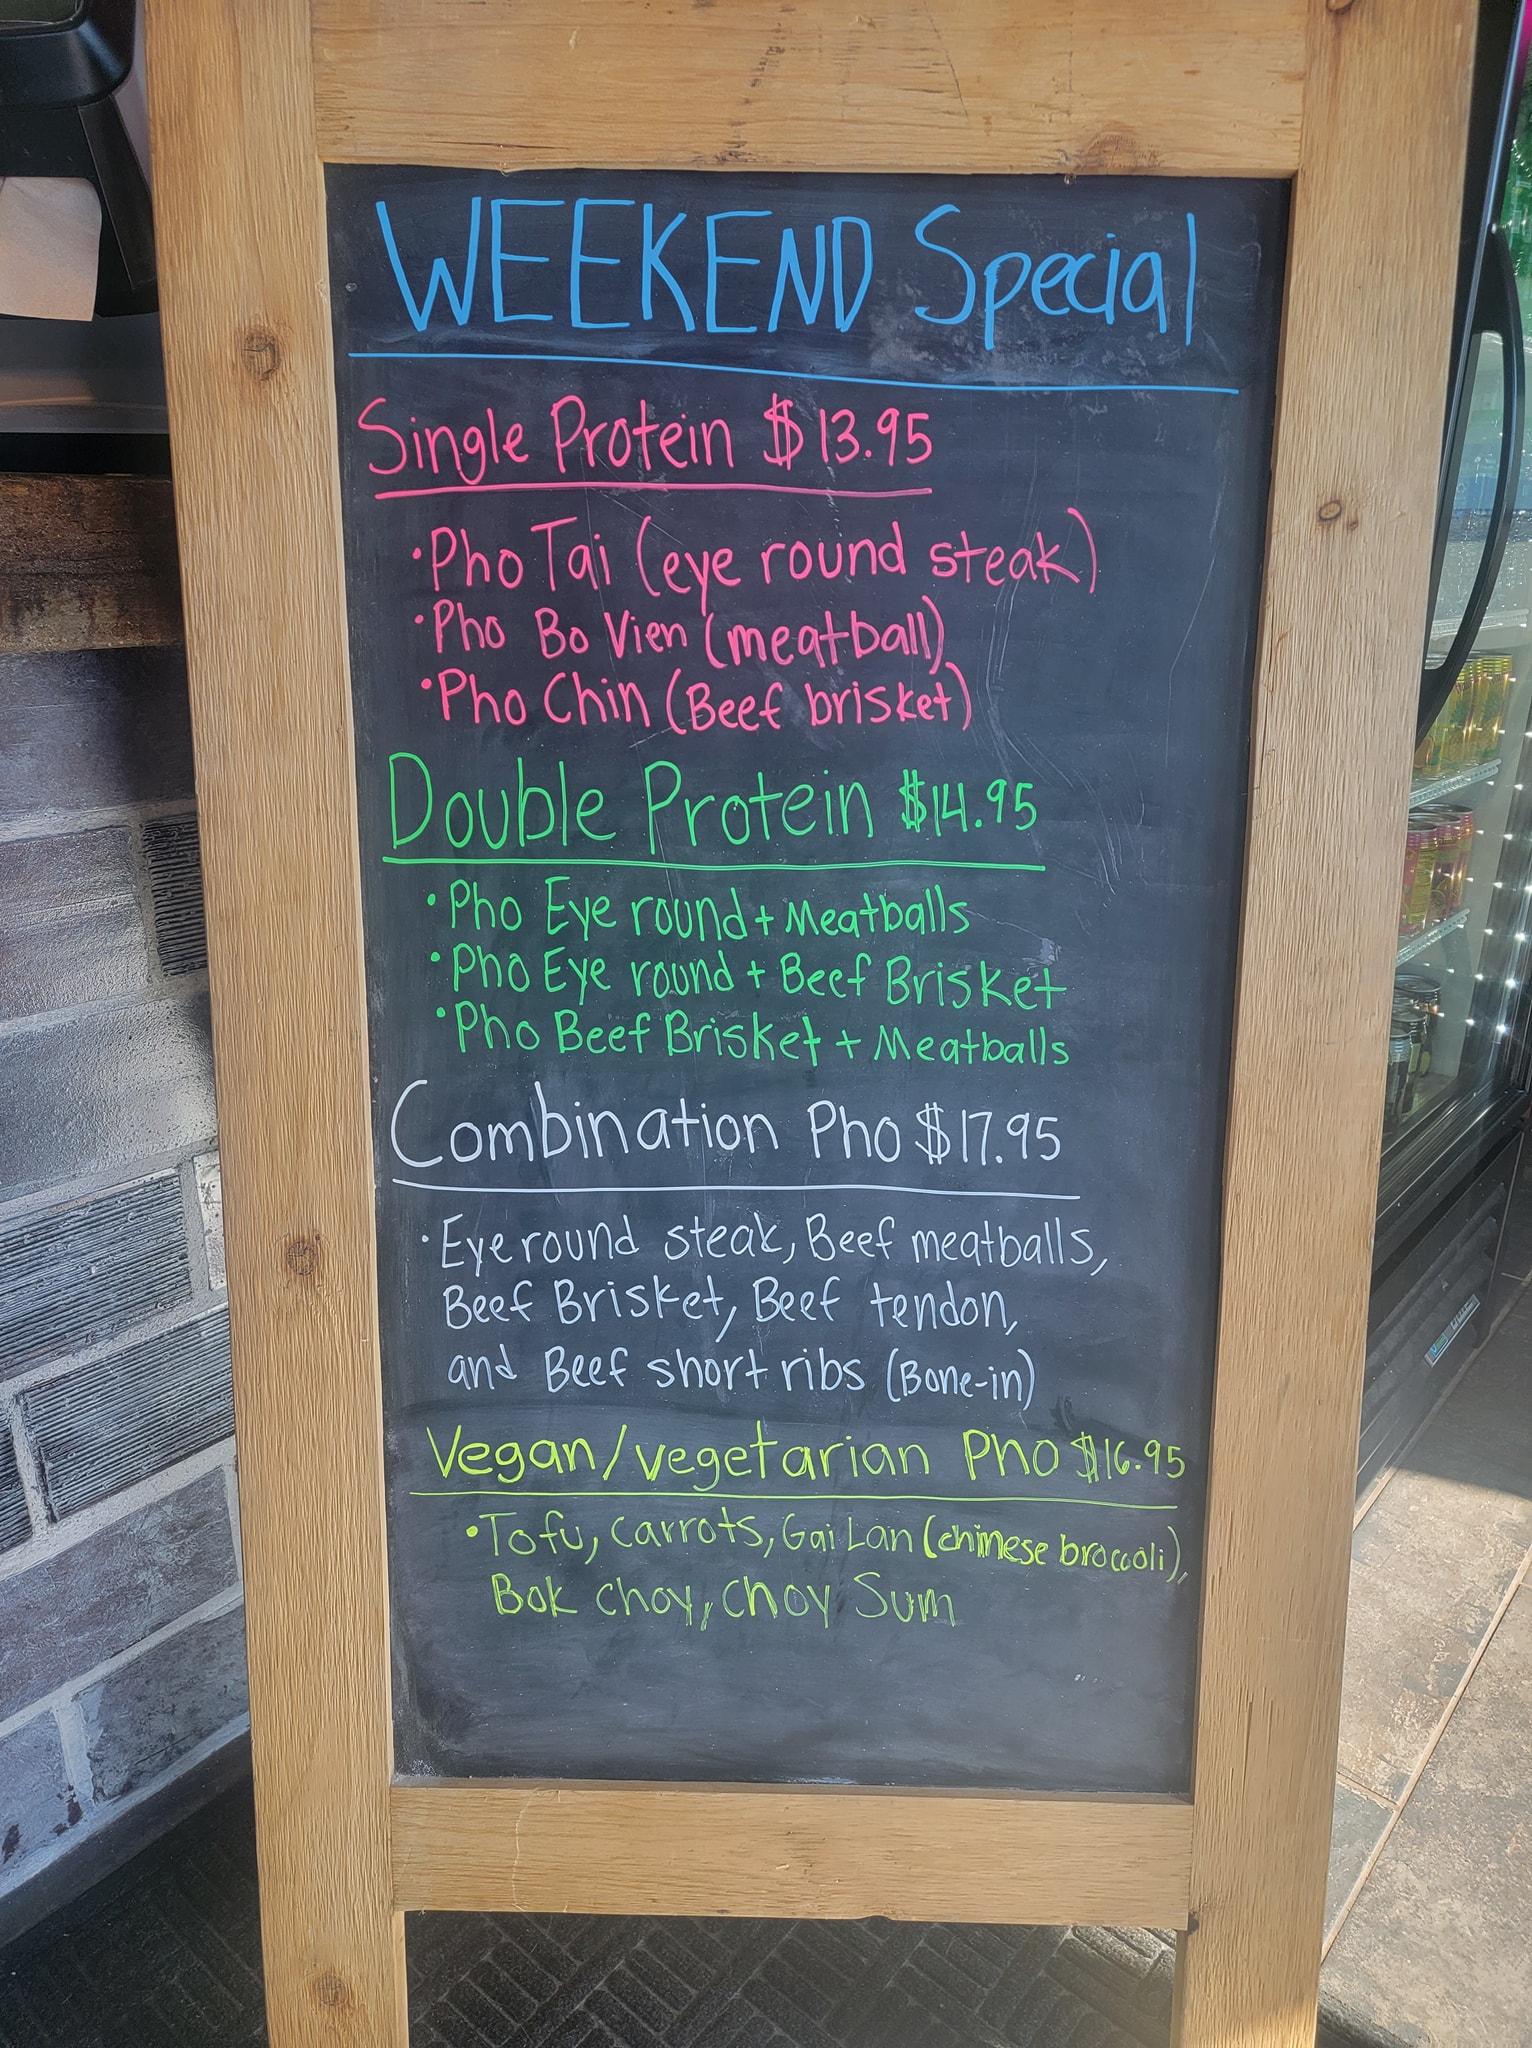 WEEKEND Special
Single Protein $13.95
• Pho Tai (eye round steak)
• Pho Bo Vien (meatball)
• Pho Chin (Beef brisket)
Double Protein $14.95
• Pho Eye round + Meatballs
• Pho Eye round + Beef Brisket
• Pho Beef Brisket + Meatballs
Combination Pho $17.95
• Eye round steak, Beef meatballs,
Beef Brisket, Beef tendon,
and Beef short ribs (Bone-in)
Vegan/vegetarian Pho $16.95
• Tofu, carrots, Gai Lan (chinese broccoli),
Bok choy, choy Sum